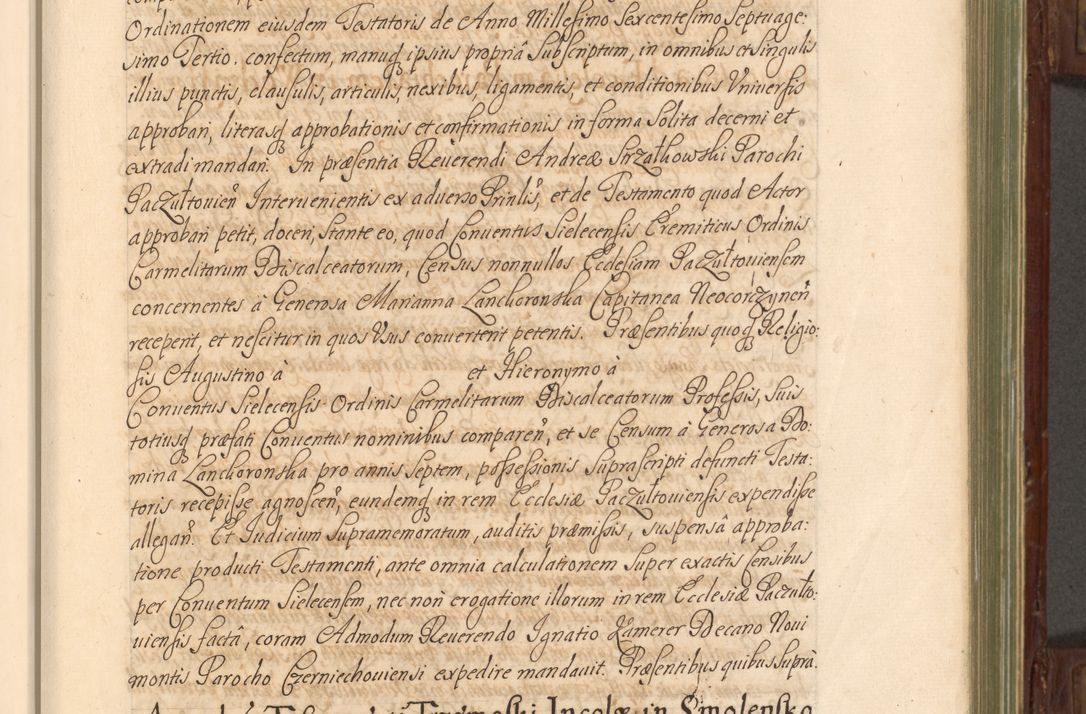 Ordinationem eiusdem Testatoris de Anno Millesimo Sexcentesimo Septuage:
simo Tertio. confectum, manuq3 ipsius propriâ Subscriptum, in omnibus et singulis
illius punctis, clausulis, articulis, nexibus, ligamentis, et conditionibus Universis
approbari, literasq3 approbationis et confirmationis in forma Solita decerni et
extradi mandari. In præsentia Reuerendi Andreæ Strzałkowski Parochi
Paczułtouien̄ Interuenientis ex aduerso Prinlis, et de Testamento quod Actor
approbari petit, docen̄, Stante eo, quod Conuentus Sielecensis Eremiticus Ordinis
Carmelitarum Discalceatorum, Census nonnullos Ecclesiam Paczułtouiensem
concernentes à Generosa Marianna Lanckoronska Capitanea Neocorczynen̄
recepent, et nescitur in quos Usus conuertent petentis. Præsentibus quoq3 Religio:
sis Augustino à et Hieronymo à
Conuentus Sielecensis Ordinis Carmelitarum Discalceatorum Professis, suis
totiusq3 præfati Conuentus nominibus comparen̄, et se Censum à Generosa Do:
mina Lanckoronska pro annis Septem, possessionis Suprascripti defuncti Testa:
toris recepisse agnoscen̄, eundemq3 in rem Ecclesiæ Paczułtouiensis expendisse
allegan̄. Et Iudicium Supramemoratum, auditis præmissis, suspensâ approba:
tione producti Testamenti, ante omnia calculationem Super exactis Censibus
per Conuentum Sielecensem, nec non erogatione illorum in rem Ecclesiæ Paczułto:
uiensis factâ, coram Admodum Reuerendo Ignatio Kamerer Decano Noui
montis Parocho Czerniechouiensi expedire mandauit. Præsentibus quibus Suprà.
Incolæ in Smolensko